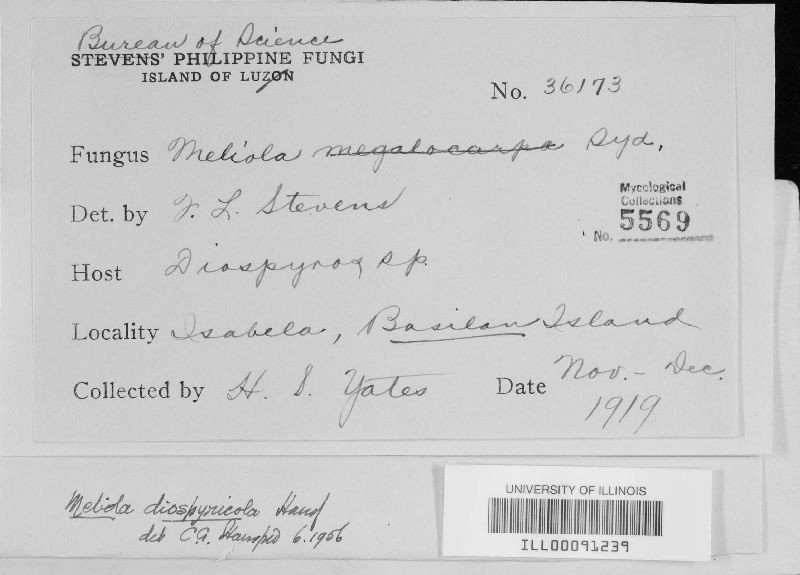 Bureau of Science
STEVENS' PHILIPPINE FUNGI
ISLAND OF LUZON
No. 36173
Fungus Meliola megalocarpa Syd.
Det. by F. L. Stevens
Mycological
Collections
No. 5569
Host Diospyros sp.
Locality Isabela, Basilan Island
Collected by H. S. Yates Date Nov. - Dec.
1919
Meliola diospyricola Hansf
det C.G. Hansford 6.1956
UNIVERSITY OF ILLINOIS
ILL00091239